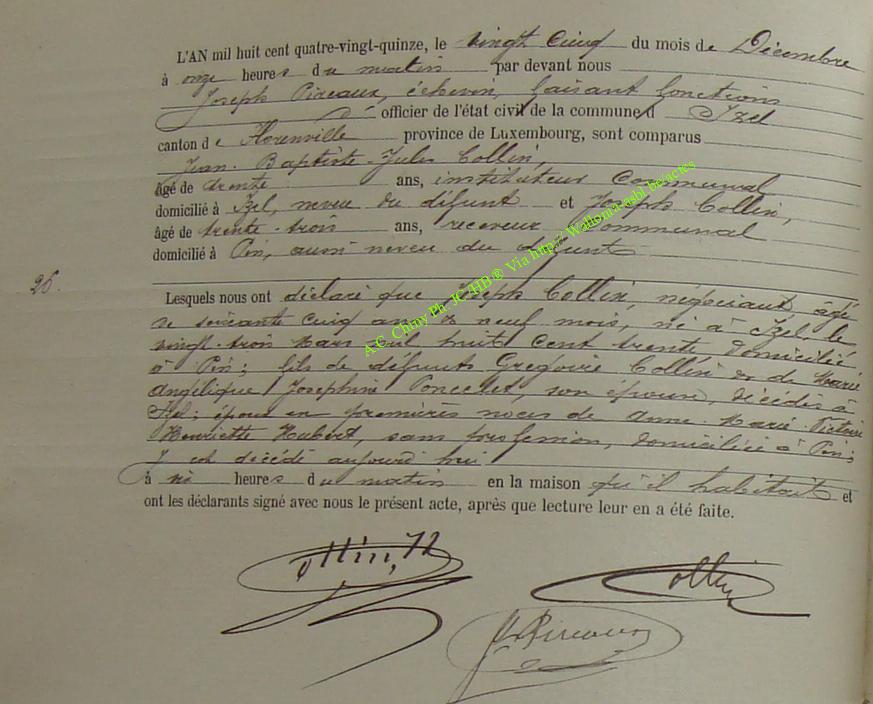 L'AN mil huit cent quatre-vingt-quinze, le vingt cinq du mois de Décembre
à onze heures du matin par devant nous
Joseph Pireaux, échevin, faisant fonctions
d' officier de l'état civil de la commune d' Izel
canton de Florenville province de Luxembourg, sont comparus
Jean-Baptiste-Jules Collin,
âgé de trente ans, instituteur communal
domicilié à Izel, neveu du défunt et Joseph Collin,
âgé de trente-trois ans, receveur communal
domicilié à Pin, aussi neveu du défunt
26.
Lesquels nous ont déclaré que Joseph Collin, négociant âgé
de soixante cinq ans & neuf mois, né à Izel, le
vingt-trois Mars mil huit cent trente domicilié
à Pin; fils de défunts Grégoire Collin & de Marie
Angélique Josephine Poncelet, son épouse, décédés à
Izel; époux en premières noces de Anne-Marie-Victoire
Henriette Hubert, sans profession, domiciliée à Pin;
y est décédé aujourd'hui
à heures du matin en la maison qu'il habitait et
ont les déclarants signé avec nous le présent acte, après que lecture leur en a été faite.
Collin, J
Collin
J. Pireaux
A.C. Chiny Ph. JC HB ® Via http://Wallonia-asbl.be/actes